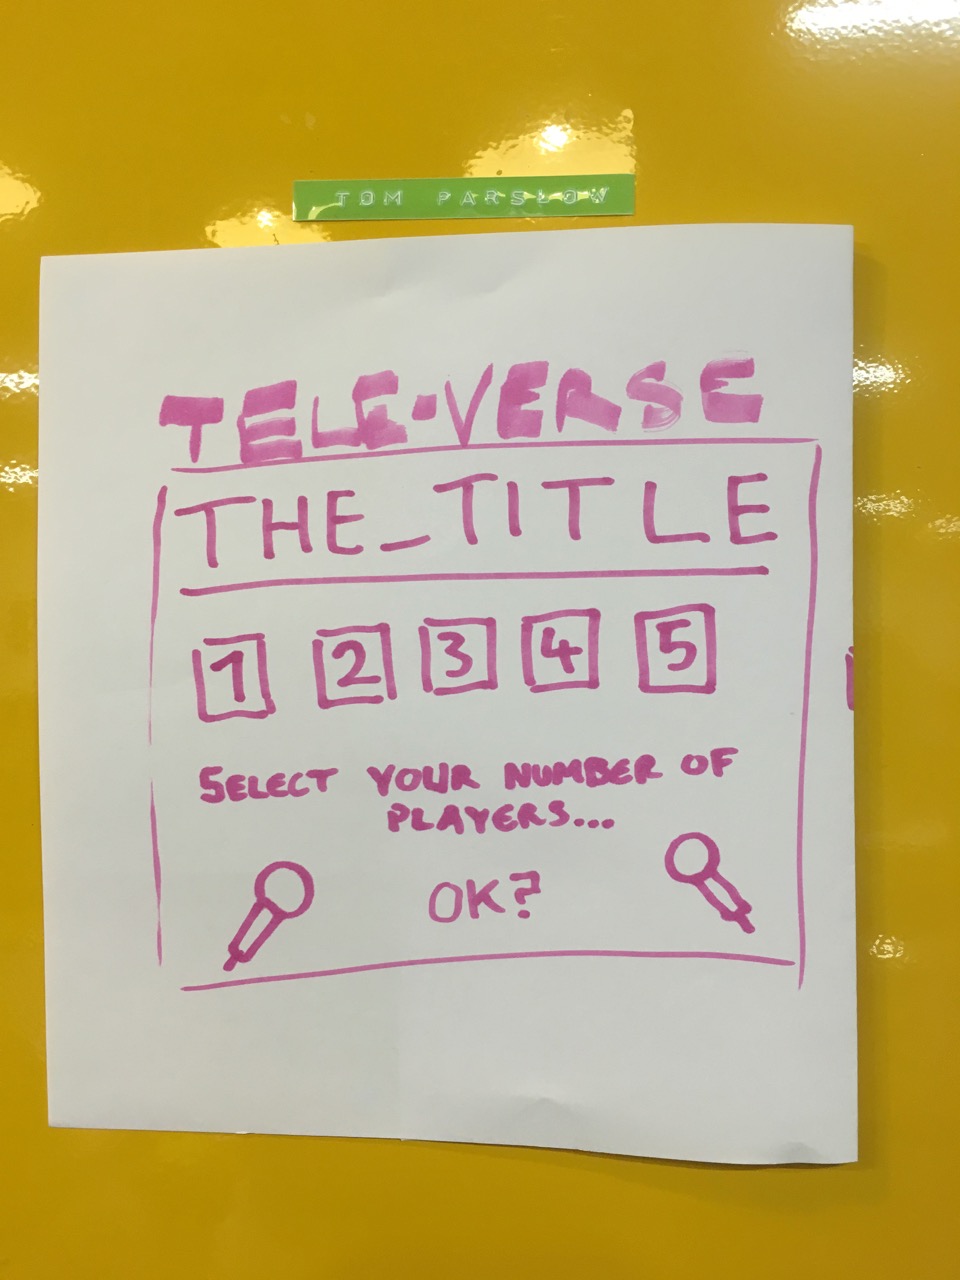 TOM PARSLOW
TELE-VERSE
THE_TITLE
1 2 3 4 5
SELECT YOUR NUMBER OF
PLAYERS...
OK?